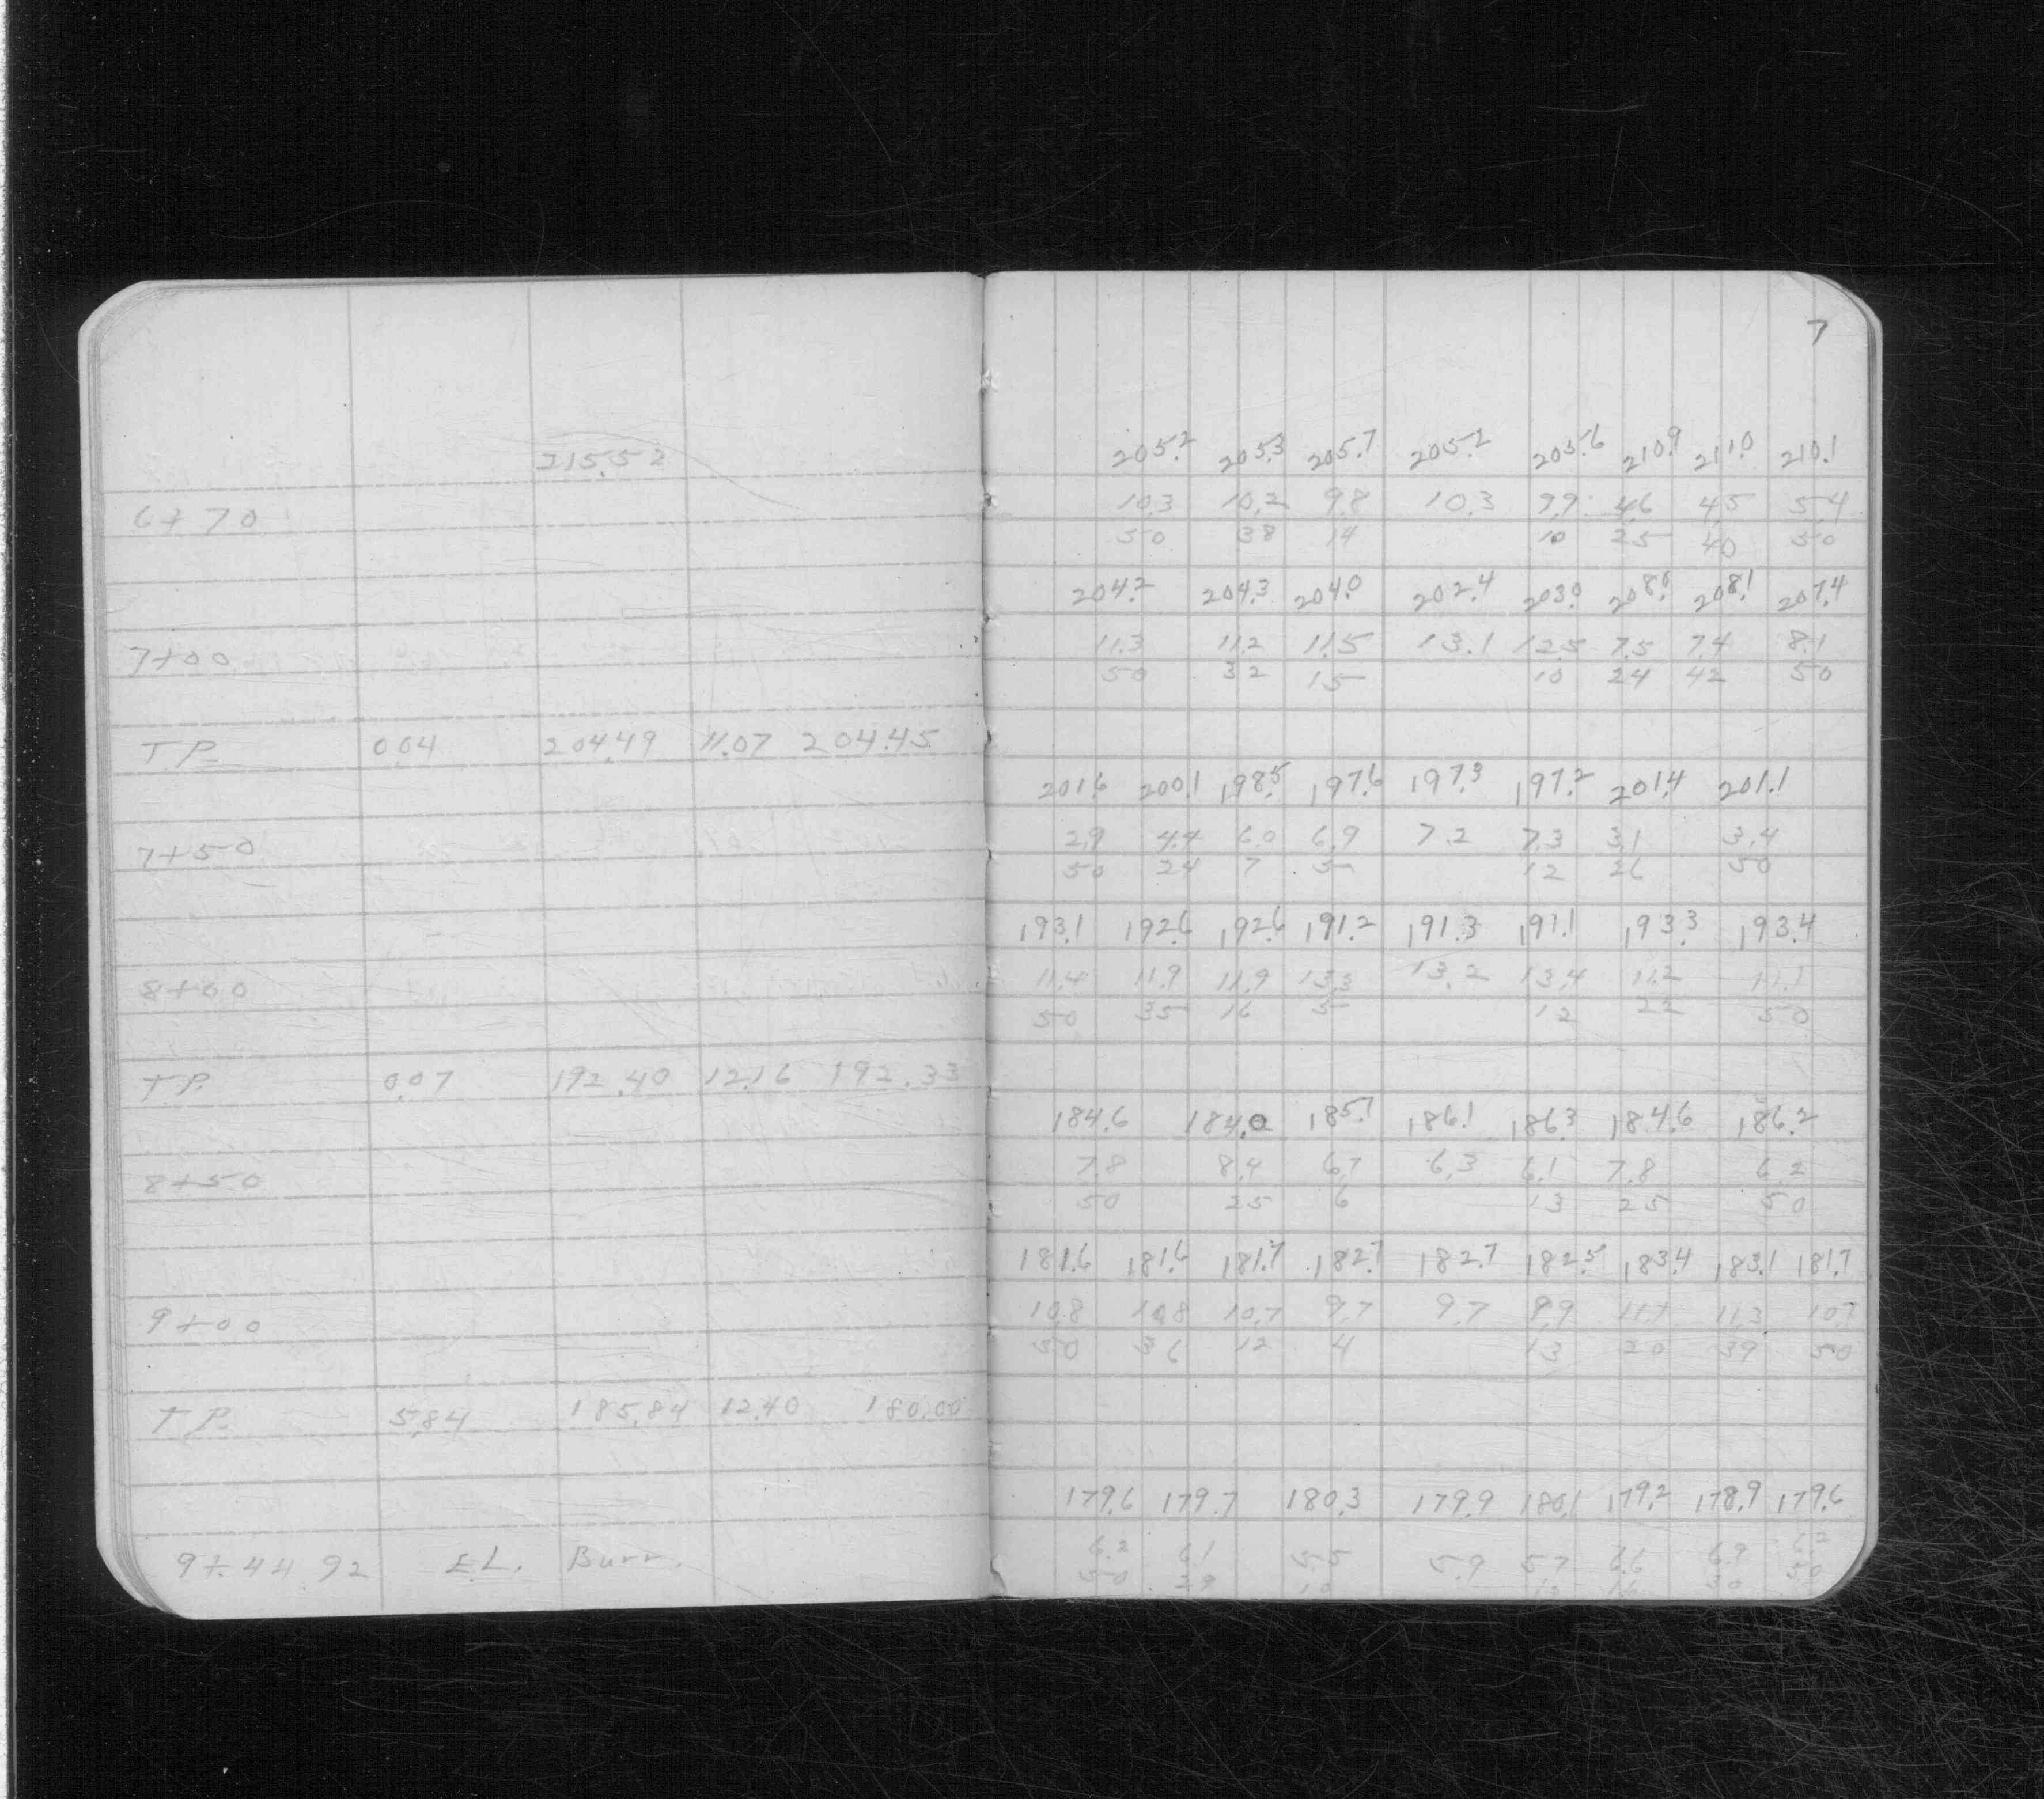 7
215.52 205.2 205.3 205.7 205.2 205.6 210.9 211.0 210.1
6+70 10.3 10.2 9.8 10.3 9.9 4.6 4.5 5.4
50 38 14 10 25 40 50
204.2 204.3 204.0 202.4 203.0 208.0 208.1 207.4
7+00 11.3 11.2 11.5 13.1 12.5 7.5 7.4 8.1
50 32 15 10 24 42 50
T.P. 0.04 204.49 11.07 204.45
201.6 200.1 198.5 197.6 197.3 197.2 201.4 201.1
7+50 2.9 4.4 6.0 6.9 7.2 7.3 3.1 3.4
50 24 7 5 12 26 50
193.1 192.6 192.6 191.2 191.3 191.1 193.3 193.4
8+00 11.4 11.9 11.9 13.3 13.2 13.4 11.2 11.1
50 35 16 5 12 22 50
T.P. 0.07 192.40 12.16 192.33
184.6 184.0 185.7 186.1 186.3 184.6 186.2
8+50 7.8 8.4 6.7 6.3 6.1 7.8 6.2
50 25 6 13 25 50
181.6 181.6 181.7 182.7 182.7 182.5 183.4 183.1 181.7
9+00 10.8 10.8 10.7 9.7 9.7 9.9 11.3 10.7
50 36 12 4 13 20 39 50
T.P. 5.84 185.84 12.40 180.00
179.6 179.7 180.3 179.9 180.1 179.2 178.9 179.6
9+44.92 E.L. Burr. 6.2 6.1 5.5 5.9 5.7 6.6 6.9 6.2
50 29 10 30 50